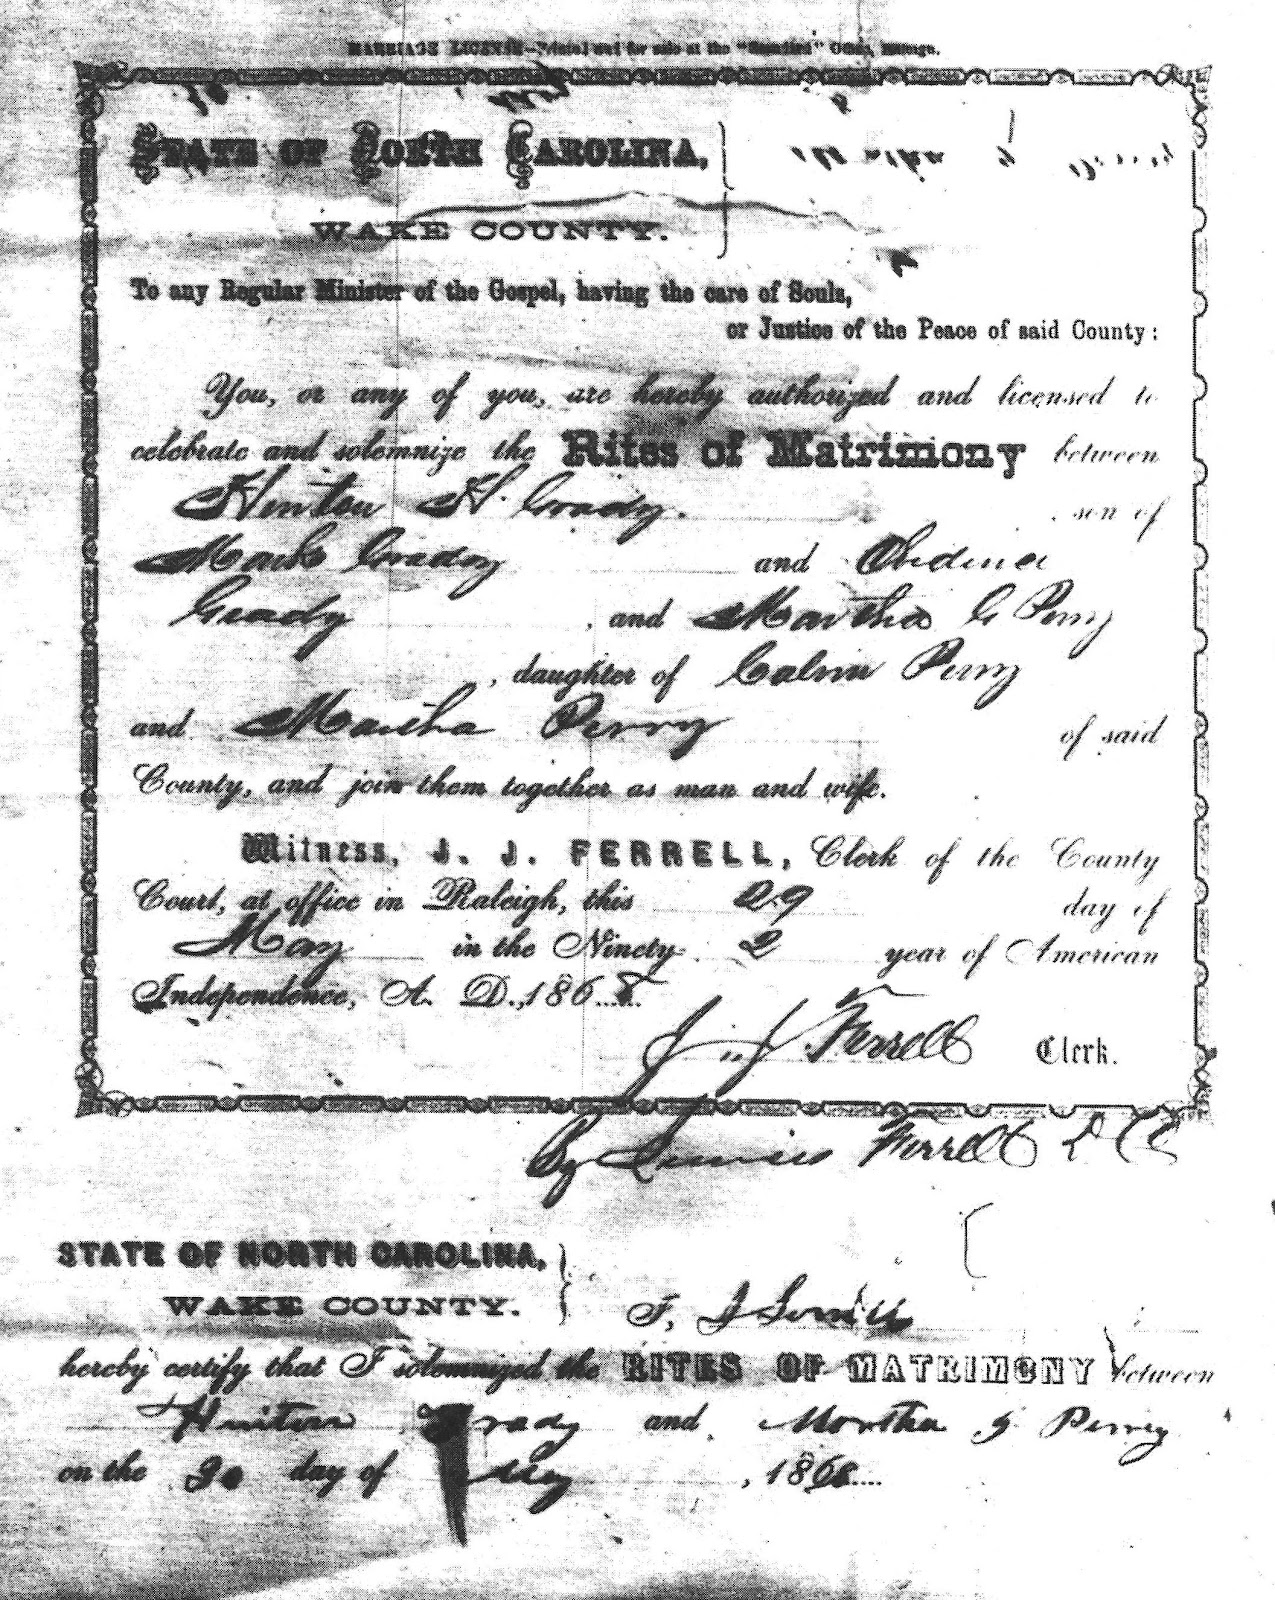 MARRIAGE LICENSE—Printed and for sale at the "Standard" Office, Raleigh.
STATE OF NORTH CAROLINA,
WAKE COUNTY.
To any Regular Minister of the Gospel, having the care of Souls,
or Justice of the Peace of said County:
You, or any of you, are hereby authorized and licensed to
celebrate and solemnize the Rites of Matrimony between
Hinton H. Grady. son of
Mark Grady and
Grady, and Martha G Perry
, daughter of Calvin Perry
and Martha Perry of said
County, and join them together as man and wife.
Witness, J. J. FERRELL, Clerk of the County
Court, at office in Raleigh, this 29 day of
May in the Ninety- 2 year of American
Independence, A. D., 1868
J. J. Ferrell Clerk.
By Ferrell D C C
STATE OF NORTH CAROLINA,
WAKE COUNTY.
hereby certify that I solemnized the RITES OF MATRIMONY between
Hinton Grady and Martha G Perry
on the 30 day of May, 1868